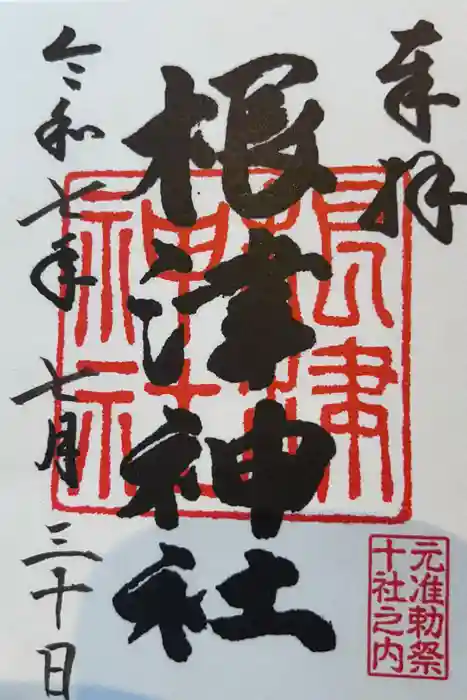 奉拝
根津神社
根津神社
令和七年七月三十日
元准勅祭
十社之内